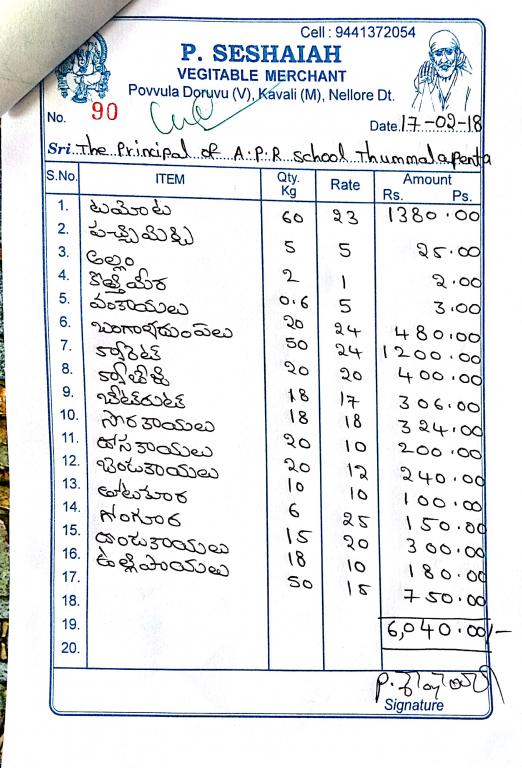 Cell : 9441372054
P. SESHAIAH
VEGITABLE MERCHANT
Povvula Doruvu (V), Kavali (M), Nellore Dt.
No. 90 Date 17-02-18
Sri The Principal of A.P.R School Thummalapenta
S.No. ITEM Qty. Kg Rate Amount Rs. Ps.
1. టమోట 60 23 1380.00
2. పచ్చిమిర్చి 5 5 25.00
3. అల్లం 2 1 2.00
4. కొత్తిమీర 0.6 5 3.00
5. వంకాయలు 20 24 480.00
6. బంగాళదుంపలు 50 24 1200.00
7. క్యారెట్ 20 20 400.00
8. క్యాబేజి 18 17 306.00
9. బీట్‌రూట్ 18 18 324.00
10. సొరకాయలు 20 10 200.00
11. దోసకాయలు 20 12 240.00
12. బెండకాయలు 10 10 100.00
13. తోటకూర 6 25 150.00
14. గోంగూర 15 20 300.00
15. దొండకాయలు 18 10 180.00
16. ఉల్లిపాయలు 50 15 750.00
17.
18.
19. 6,040.00/-
20.
Signature